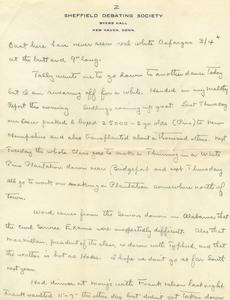 2
SHEFFIELD DEBATING SOCIETY
BYERS HALL
NEW HAVEN, CONN.
But here I am never new and white 3/4"
at the butt and 9" long.
Tally wants me to go down to another dance today
but I am swearing off for a while. Handed in my Monthly
Report this morning. coming around great. Last Thursday
our four packed & loped 25000 - 2 yr olds (Pine) to New
Hampshire and also transplanted about a thousand others. Next
Tuesday the whole Class goes to make a Thinning in a White
Pine Plantation down near Bridgeport and next Thursday
all go to work on making a Plantation somewhere north of
town.
Word came from the Seniors down in Alabama that
the Civil Service Exams were unexpectedly difficult. Also that
MacMillan, president of the class, is down with Typhoid, and that
the weather is hot as Hades. I hope we don't go as far South
next year.
Had dinner at Mory's with Frank Nelson last night.
Frank vaulted 11'-9" the other day but didn't get taken down